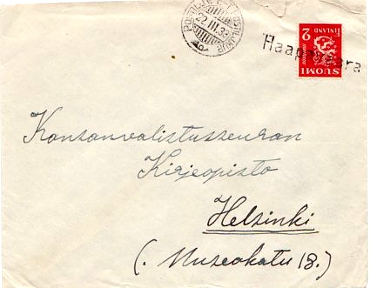 22.III.3
Haap vaara
2
SUOMI
FINLAND
Kansanvalistusseuran
Kirjeopisto
Helsinki
(. Museokatu 18.)